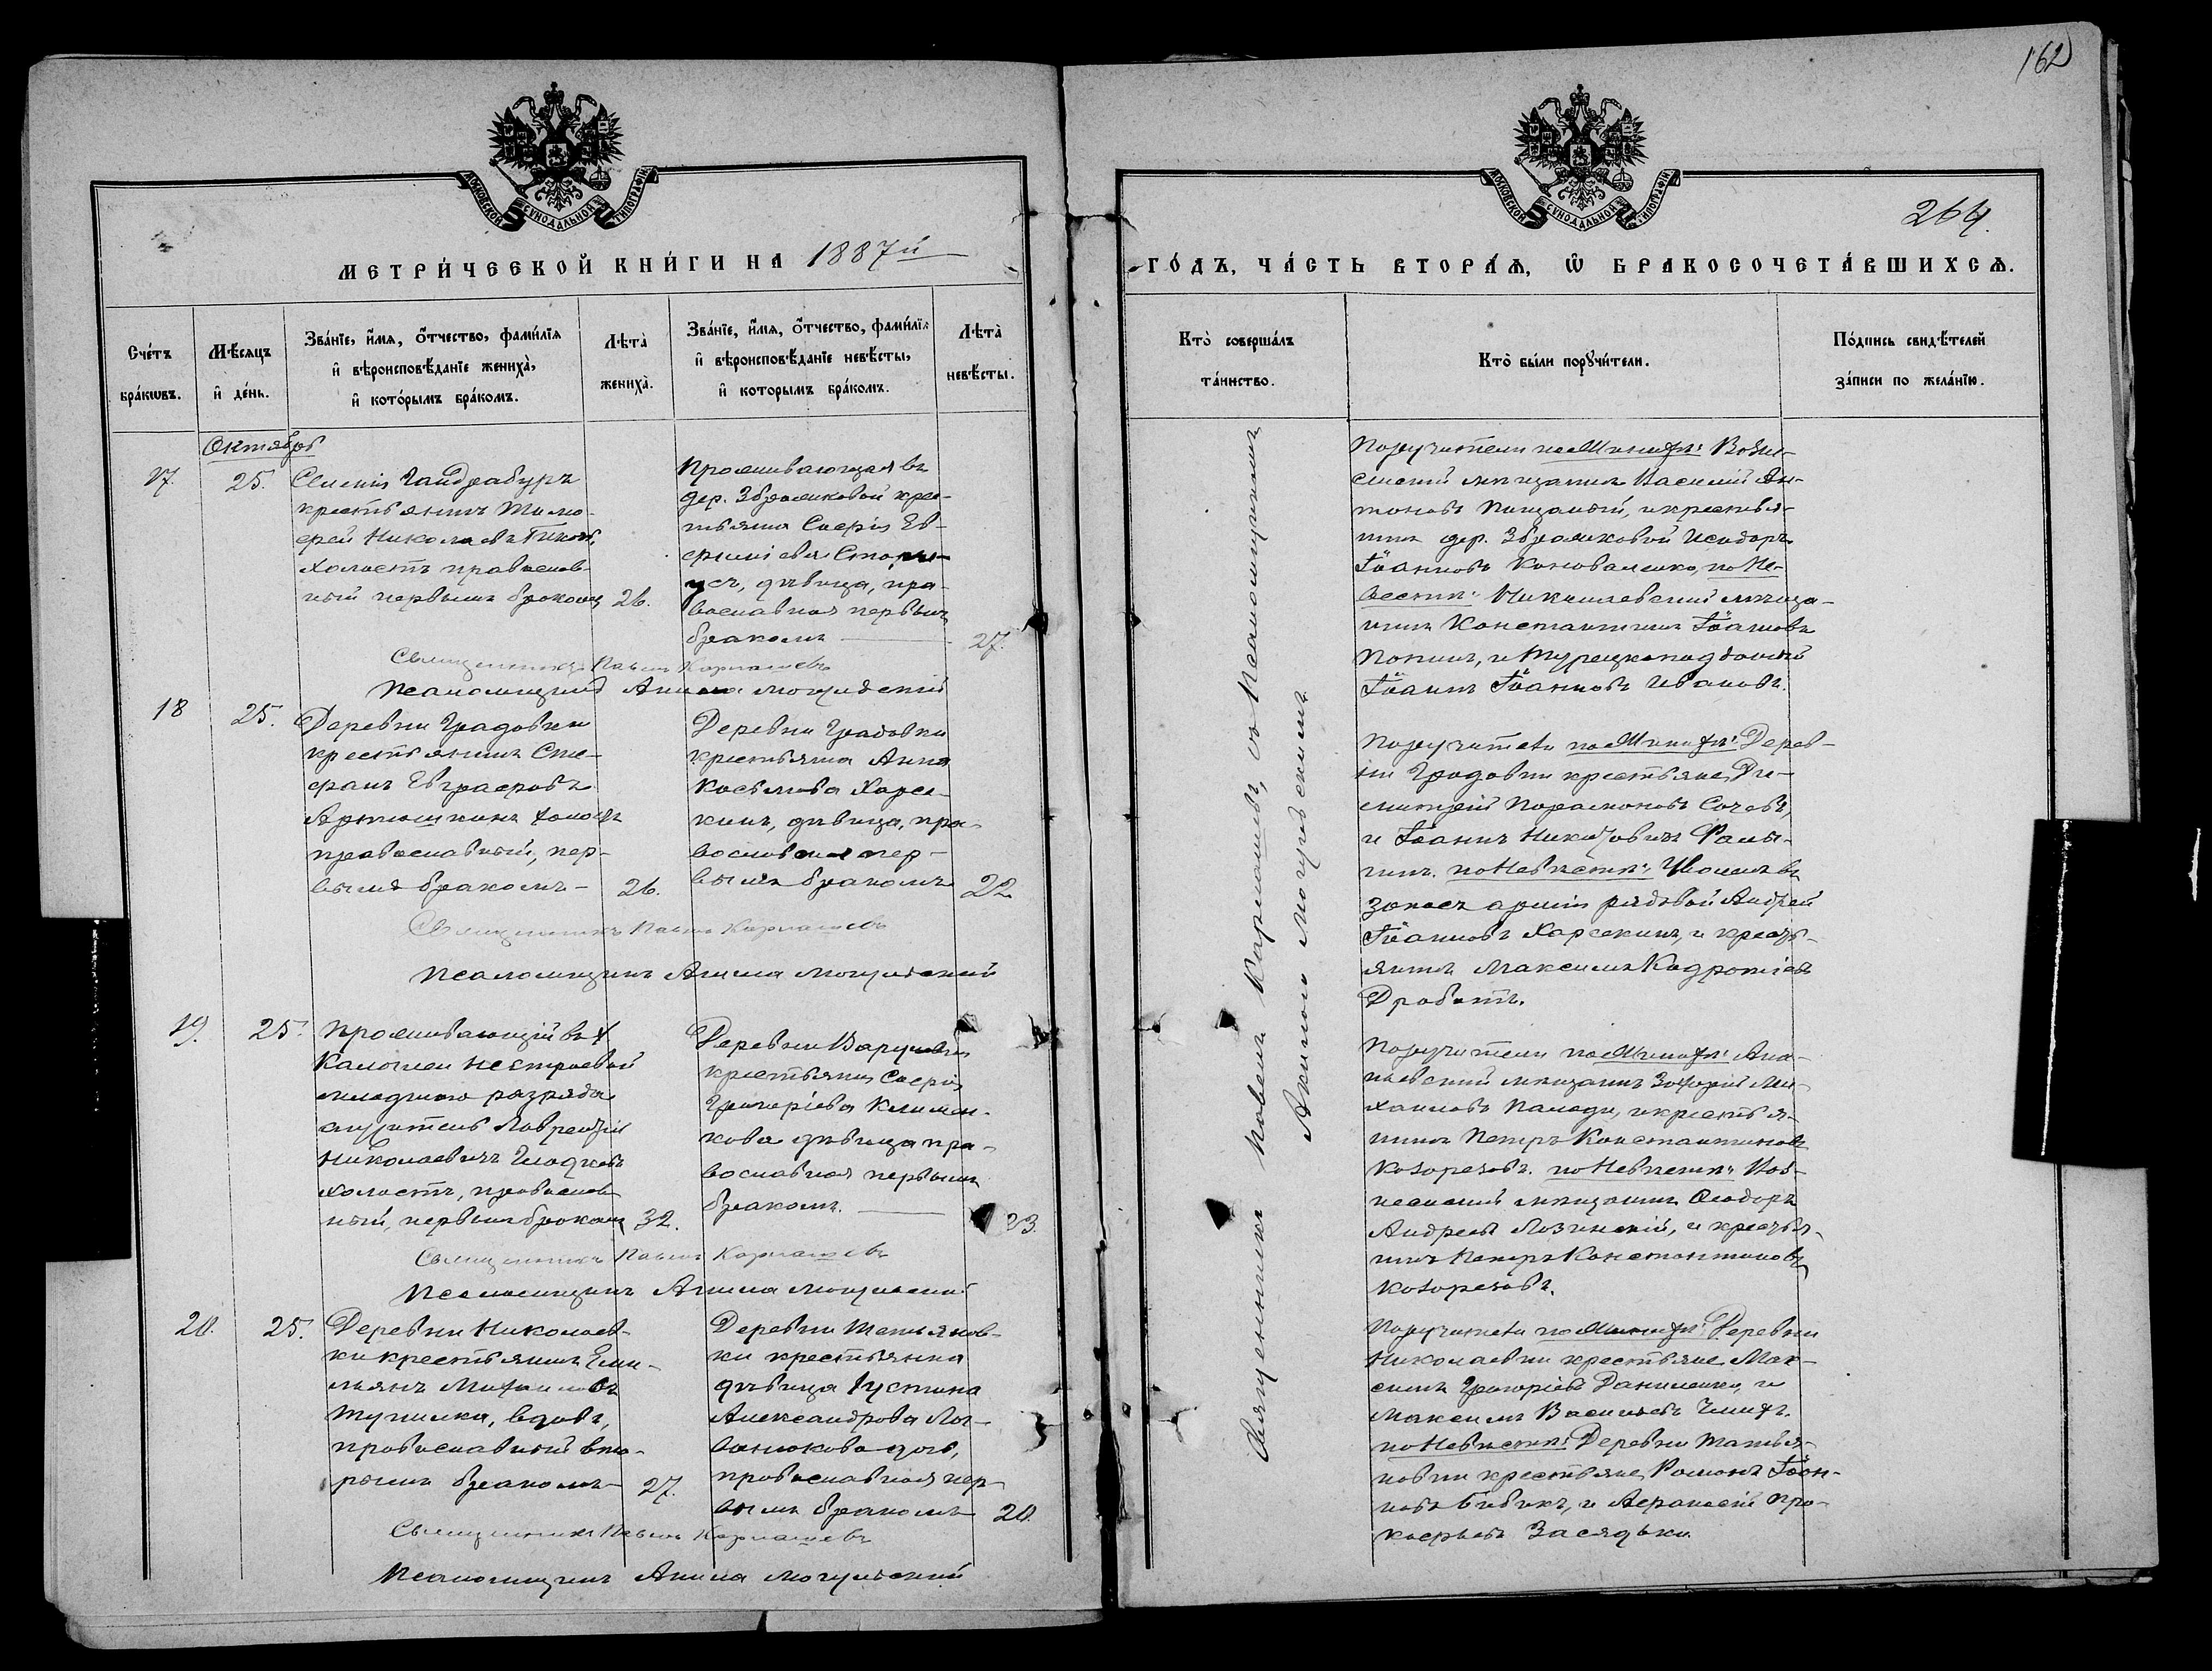 162
264.
МОСКОВСКОЙ СУНОДАЛЬНОЙ ТИПОГРАФІИ
МОСКОВСКОЙ СУНОДАЛЬНОЙ ТИПОГРАФІИ
МЕТРИ́ЧЕСКОЙ КНИ́ГИ НА 1887й
ГО́ДЪ, ЧА́СТЬ ВТОРА́Ѧ, Ѿ БРАКОСОЧЕТА́ВШИХСѦ.
Сче́тъ
бра́кѡвъ.
Мѣ́сяцъ
и҆ де́нь.
Зва́нїе, и҆́мѧ, ѻ҆́тчество, фами́лїѧ
и҆ вѣроисповѣ́данїе жениха̀,
и҆ кото́рымъ бра́комъ.
Лѣта̀
жениха̀.
Зва́нїе, и҆́мѧ, ѻ҆́тчество, фами́лїѧ
и҆ вѣроисповѣ́данїе невѣ́сты,
и҆ которымъ бра́комъ.
Лѣта̀
невѣ́сты.
Кто̀ соверша́лъ
та́инство.
Кто̀ бы́ли порꙋчи́тели.
По́дпись свидѣ́телей
за́писи по жела́нїю.
Октябрь
17.
25.
Селенія Гайдрабуръ
крестьянинъ Тимо-
фей Николаевъ
холостъ православ-
ный первымъ бракомъ
26.
Проживающая въ
дер. Збражковой крес-
тьянка Софія Ев-
фиміева
дѣвица, пра-
вославная первымъ
бракомъ
27.
Священникъ Павелъ Карташевъ
Псаломщикъ Акила Могулевскій
18
25.
Деревни Градовки
крестьянинъ Сте-
фанъ Евграфовъ
Артюшкинъ холостъ
православный, пер-
вымъ бракомъ-
26.
Деревни Градовки
крестьянка Анна
Косьмова Харсе-
кинъ, дѣвица, пра-
вославная пер-
вымъ бракомъ
22
Священникъ Павелъ Карташевъ
Псаломщикъ Акила Могулевскій
19.
25.
Проживающій въ х.
нестроевой
младшаго разряда
служитель Лаврентій
Николаевичъ Гладковъ
холостъ, православ-
ный, первымъ бракомъ
32.
Деревни
крестьянка Софія
Григоріева Климен-
кова дѣвица пра-
вославная первымъ
бракомъ.
23.
Священникъ Павелъ Карташевъ
Псаломщикъ Акила Могулевскій
20.
25.
Деревни Николаев-
ки крестьянинъ Еми-
льянъ Михаиловъ
вдовъ,
православный вто-
рымъ бракомъ-
27.
Деревни Татьянов-
ки крестьянка
дѣвица Іустина
Александрова Лог-
винюкова дочь,
православная пер-
вымъ бракомъ
20.
Священникъ Павелъ Карташевъ
Псаломщикъ Акила Могулевскій
Священникъ Павелъ Карташевъ, съ Псаломщикомъ
Акилою Могулевскимъ.
Поручители по Женихѣ: Возне-
сенскій мѣщанинъ Василій Ан-
тоновъ и крестья-
нинъ дер. Збражковой Исидоръ
Іоанновъ Коноваленко, по Не-
вестѣ: Николаевскій мѣща-
нинъ Константинъ Іоанновъ
и Турецкоподданый
Іоаннъ Іоанновъ Ивановъ.
Поручители по Женихѣ: Дерев-
ни Градовки крестьяне, Ди-
митрій Парамоновъ Сочевъ,
и Іоаннъ
по Невѣстѣ:
запасъ арміи рядовой Андрей
Іоанновъ Харсекинъ, и крестья-
янинъ Максимъ Кодротіевъ
Дроботъ.
Поручители по Женихѣ: Ана-
ньевскій мѣщанинъ Захарій Ми-
хаиловъ Паладі, и крестья-
нинъ Петръ Константиновъ
Козорезовъ. по Невѣстѣ: Воз-
несенскій мѣщанинъ Ѳеодоръ
Андреевъ Лозинскій, и крестья-
нинъ Петръ Константиновъ
Козорезовъ.
Поручители по Женихѣ: Деревни
Николаевки крестьяне Мак-
симъ Григоріевъ Даниленко, и
Максимъ Васильевъ
по Невѣстѣ: Деревни Татья-
новки крестьяне, Романъ Іоан-
новъ Бибикъ, и Афанасій Про-
кофьевъ Засядько.